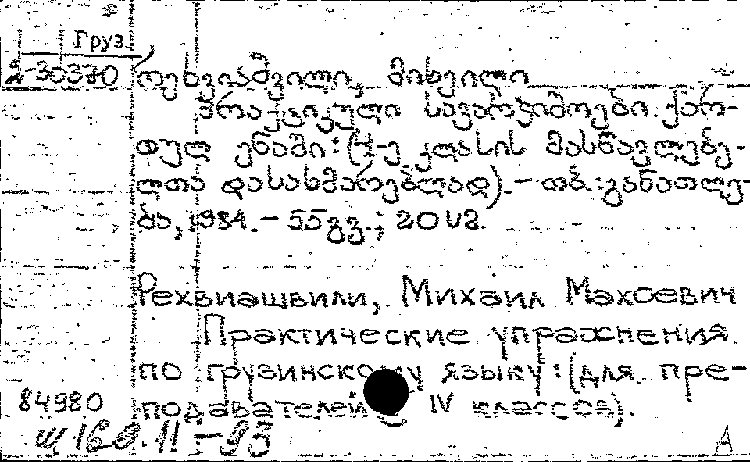 Груз.
2-30370
რეხვიაშვილი, მიხეილი
პრაქტიკული სავარჯიშოები ქარ-
თულ ენაში: (4-ე კლასის მასწავლებე-
ლთა დასახმარებლად). - თბ.: განათლე-
ბა, 1984. - 55 გვ.; 20 us.
Рехвиашвили, Михаил Махсевич
Практические упражнения
по грузинскому языку: (для пре-
подавателей IV классов).
84980
A